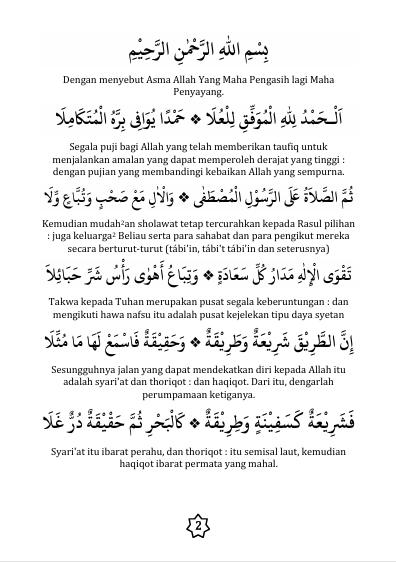 بِسْمِ اللهِ الرَّحْمٰنِ الرَّحِيْمِ
Dengan menyebut Asma Allah Yang Maha Pengasih lagi Maha
Penyayang.
اَلْـحَمْدُ لِلّٰهِ الْمُوَفِّقِ لِلْعُلَا ❖ حَمْدًا يُوَافِى بِرَّهُ الْمُتَكَامِلَا
Segala puji bagi Allah yang telah memberikan taufiq untuk
menjalankan amalan yang dapat memperoleh derajat yang tinggi :
dengan pujian yang membandingi kebaikan Allah yang sempurna.
ثُمَّ الصَّلَاةُ عَلَى الرَّسُوْلِ الْمُصْطَفٰى ❖ وَالْاٰلِ مَعْ صَحْبٍ وَتُبَّاعٍ وِّلَا
Kemudian mudah²an sholawat tetap tercurahkan kepada Rasul pilihan
: juga keluarga² Beliau serta para sahabat dan para pengikut mereka
secara berturut-turut (tábi'in, tábi't tábi'in dan seterusnya)
تَقْوَى الْإِلٰهِ مَدَارُ كُلِّ سَعَادَةٍ ❖ وَتِبَاعُ أَهْوٰى رَأْسُ شَرِّ حَبَائِلَا
Takwa kepada Tuhan merupakan pusat segala keberuntungan : dan
mengikuti hawa nafsu itu adalah pusat kejelekan tipu daya syetan
إِنَّ الطَّرِيْقَ شَرِيْعَةٌ وَطَرِيْقَةٌ ❖ وَحَقِيْقَةٌ فَاسْمَعْ لَهَا مَا مُثِّلَا
Sesungguhnya jalan yang dapat mendekatkan diri kepada Allah itu
adalah syari'at dan thoriqot : dan haqiqot. Dari itu, dengarlah
perumpamaan ketiganya.
فَشَرِيْعَةٌ كَسَفِيْنَةٍ وَطَرِيْقَةٌ ❖ كَالْبَحْرِ ثُمَّ حَقْيْقَةٌ دُرٌّ غَلَا
Syari'at itu ibarat perahu, dan thoriqot : itu semisal laut, kemudian
haqiqot ibarat permata yang mahal.
2